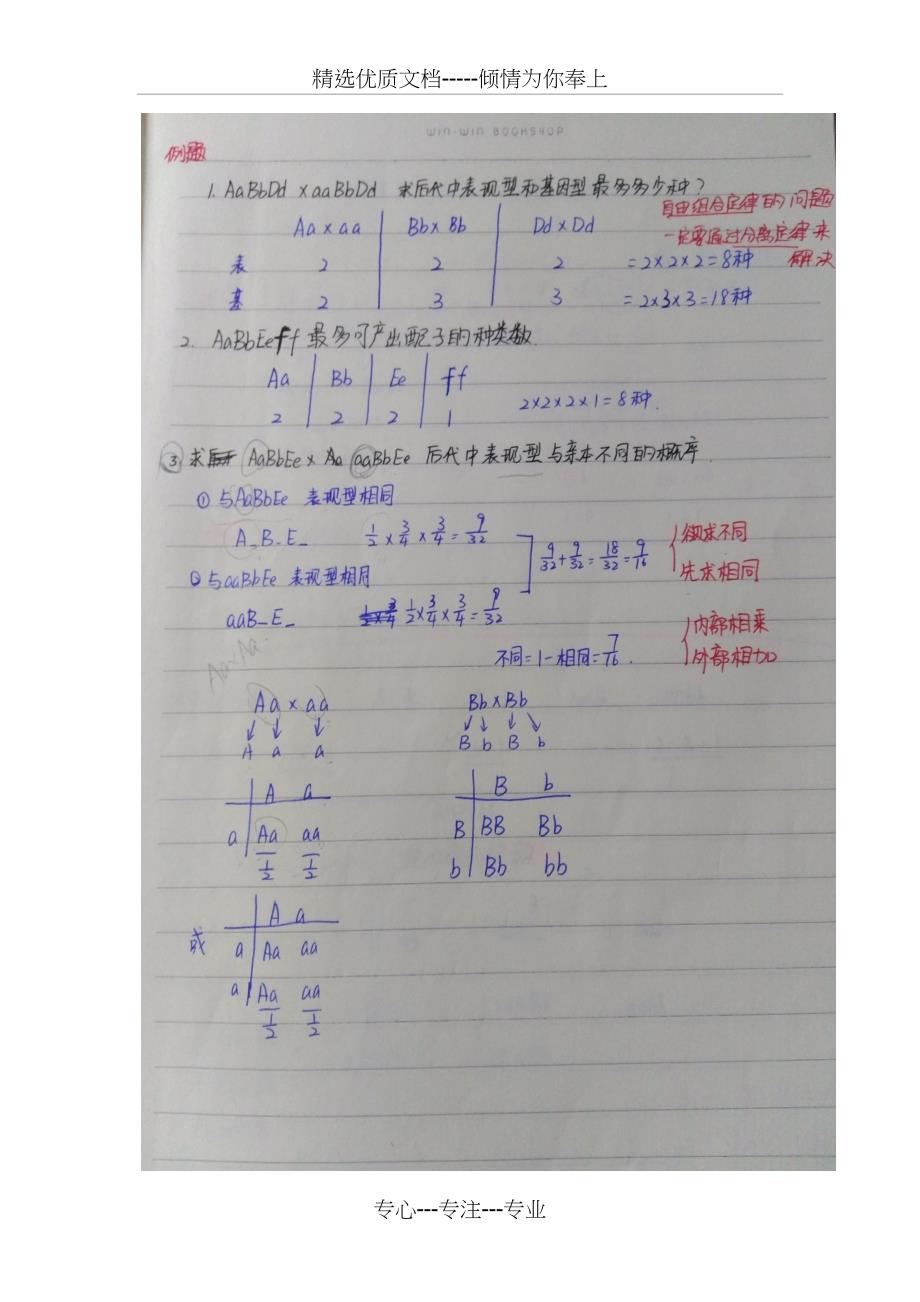 精选优质文档-----倾情为你奉上
WIN-WIN BOOKSHOP
例题
1. AaBbDd × aaBbDd 求后代中表现型和基因型最多多少种?
自由组合定律的问题
一定要通过分离定律来
解决
Aa × aa Bb × Bb Dd × Dd
表 2 2 2 =2×2×2=8种
基 2 3 3 =2×3×3=18种
2. AaBbEeff最多可产出配子的种类数.
Aa Bb Ee ff
2 2 2 1 2×2×2×1=8种.
③ 求 AaBbEe × aaBbEe 后代中表现型与亲本不同的概率.
① 与AaBbEe 表现型相同
A_B_E_ 1/2 × 3/4 × 3/4 = 9/32
9/32 + 9/32 = 18/32 = 9/16
欲求不同
先求相同
② 与aaBbEe 表现型相同
aaB_E_ 1/2 × 3/4 × 3/4 = 9/32
不同=1-相同=7/16.
内部相乘
外部相加
Aa×Aa
Aa × aa Bb × Bb
A a a B b B b
A a B b
a Aa aa B BB Bb
1/2 1/2 b Bb bb
或 A a
a Aa aa
a Aa aa
1/2 1/2
专心---专注---专业